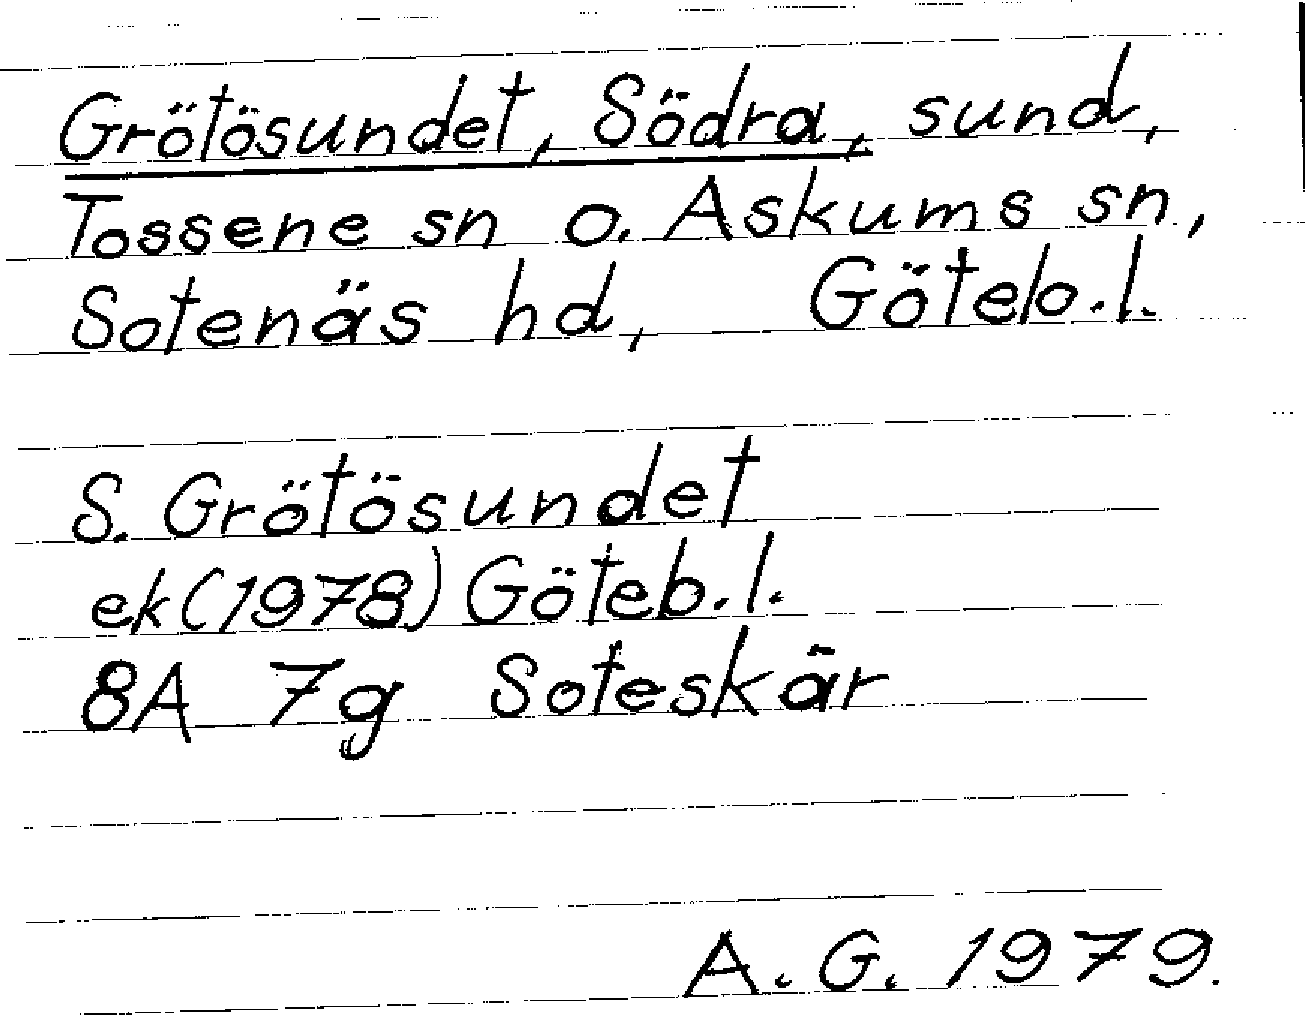 Grötösundet, Södra, sund,
Tossene sn o. Askums sn,
Sotenäs hd, Göteb.l.
S. Grötösundet
ek (1978) Göteb.l.
8A 7g Soteskär
A.G. 1979.